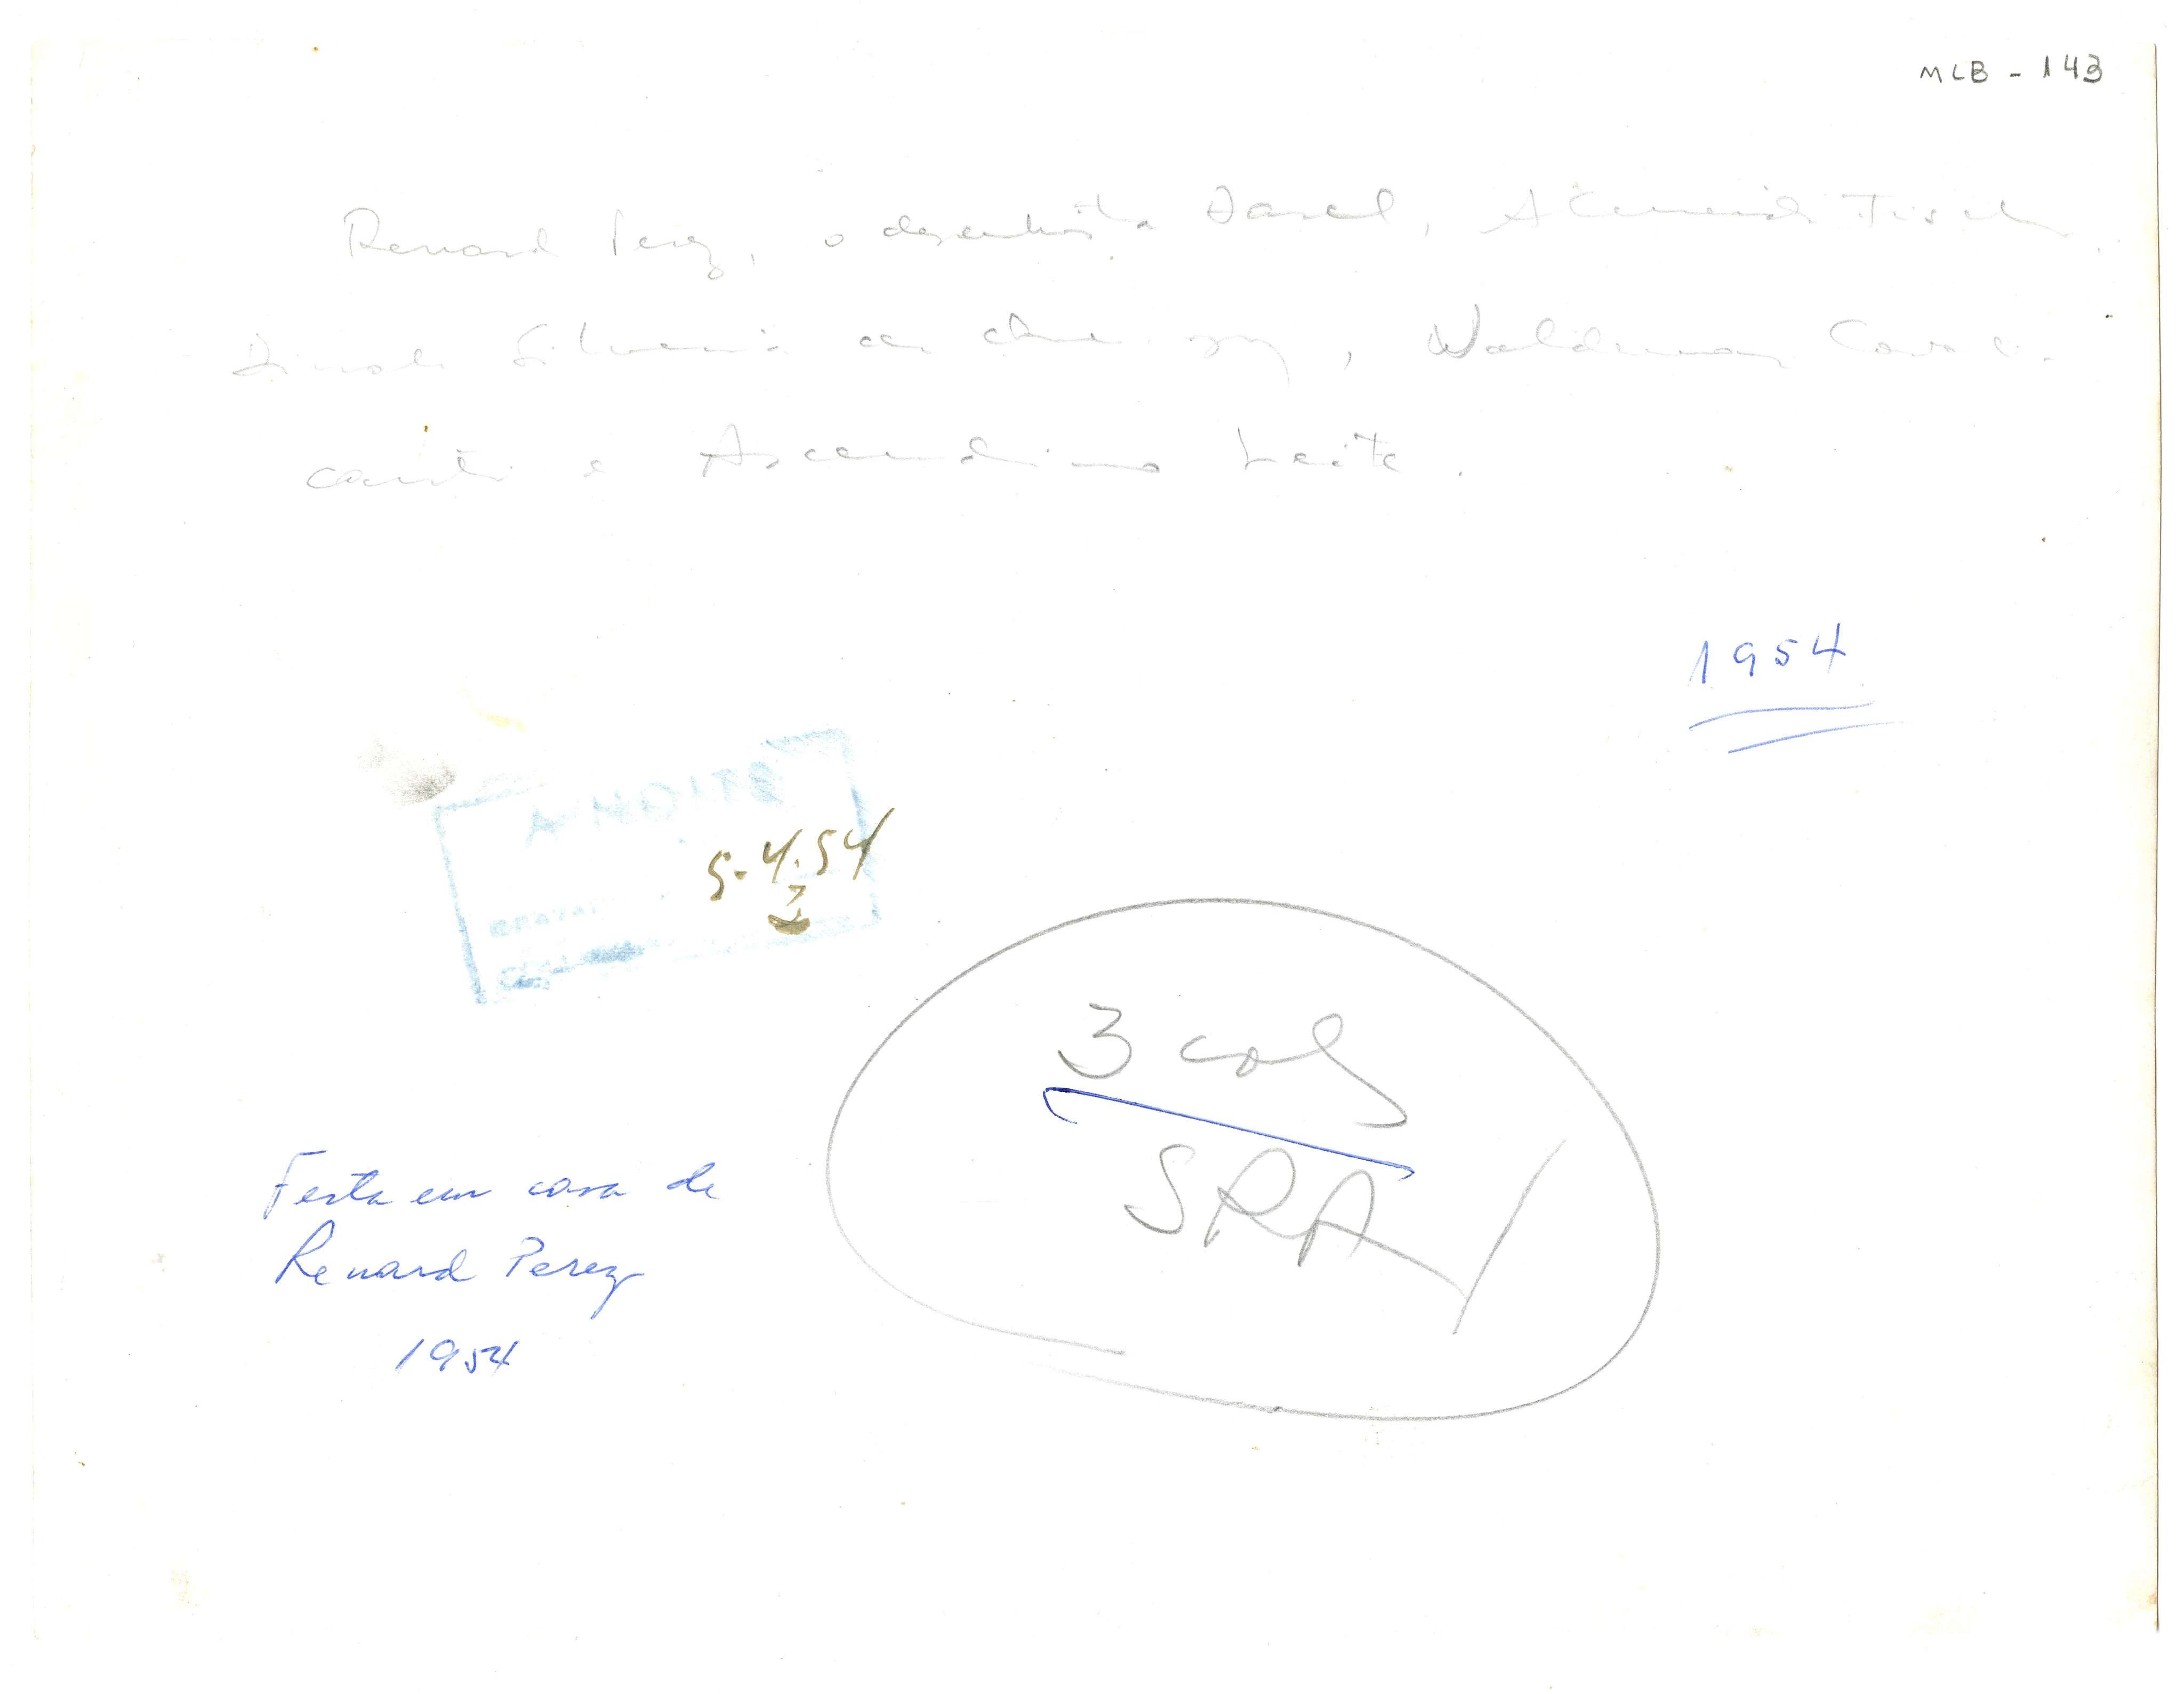 MLB - 143
Renard Perez, o desenhista Darel, Almeida Fischer,
Dinah Silveira de Queiroz, Waldemar Caval-
canti e Ascendino Leite.
1954
A NOITE
5-4-54
3 cols
SRA
Festa em casa de
Renard Perez
1954